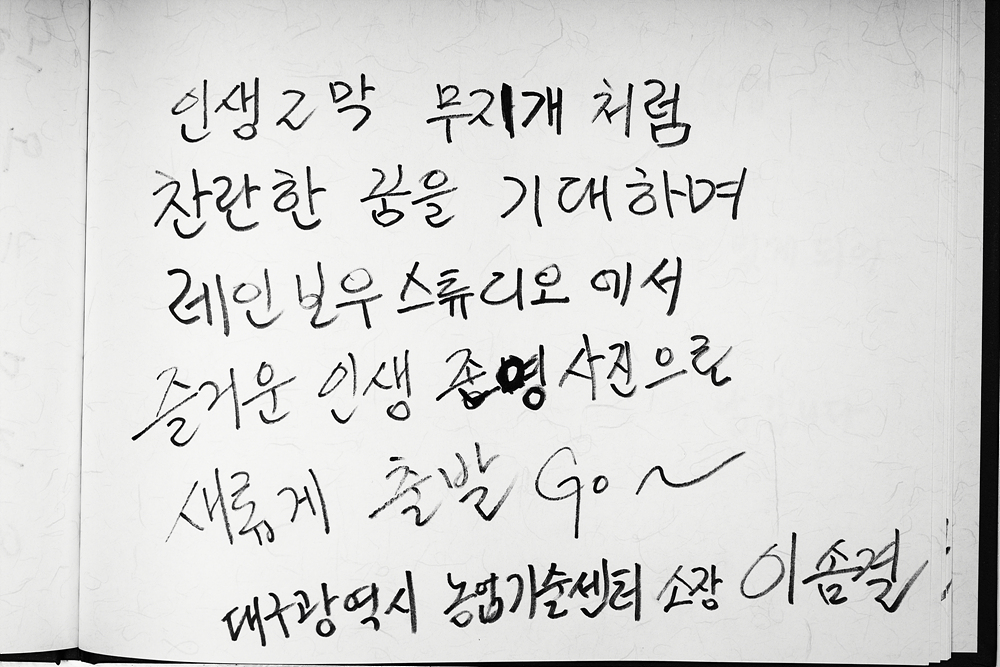 인생 2막 무지개 처럼
찬란한 꿈을 기대하며
레인보우 스튜디오에서
즐거운 인생 사진으로
새롭게 출발 Go~
대구광역시 농업기술센터 소장 이솜결